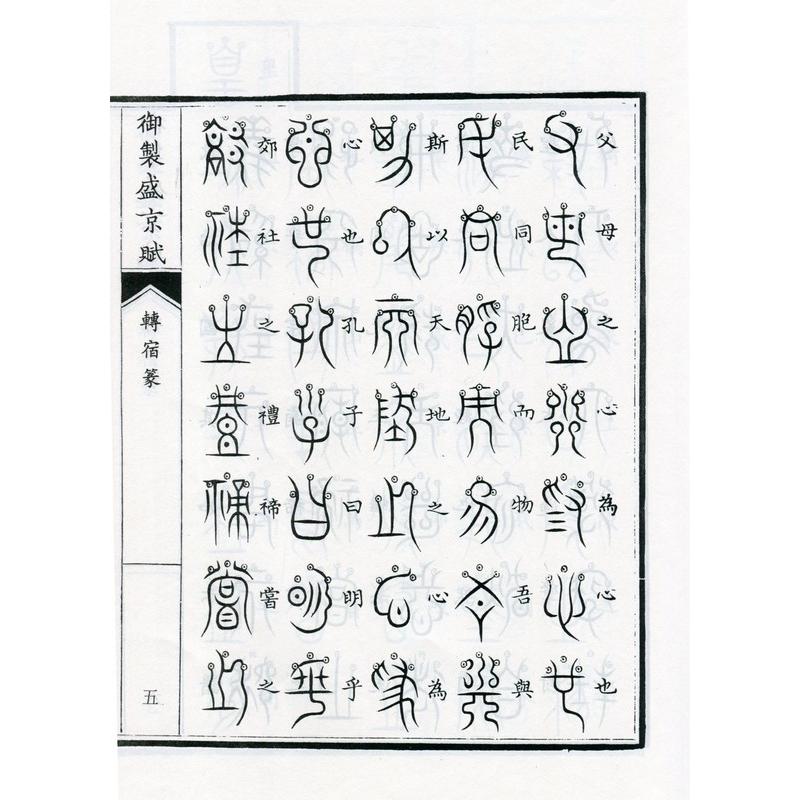 父母之心為心也
民同胞而物吾與
斯以天地之心為
心也孔子曰明乎
郊社之禮禘嘗之
御製盛京賦
轉宿篆
五